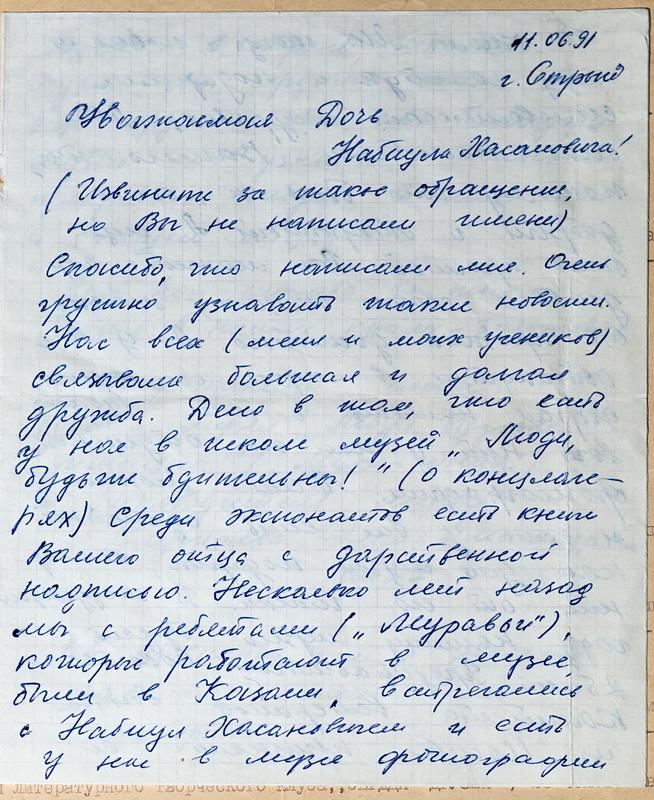 11.06.91
г. Стрый
Уважаемая Дочь
Набиула Хасановича!
(Извините за такое обращение,
но Вы не написали имени)
Спасибо, что написали мне. Очень
грустно узнавать такие новости.
Нас всех (меня и моих учеников)
связывала большая и долгая
дружба. Дело в том, что есть
у нас в школе музей „Люди,
будьте бдительны!" (о концлаге-
рях) Среди экспонатов есть книги
Вашего отца с дарственной
надписью. Несколько лет назад
мы с ребятами („Муравьи"),
которые работают в музее,
были в Казани, встречались
с Набиул Хасановичем и есть
у нас в музее фотографии
литературного творческого клуба